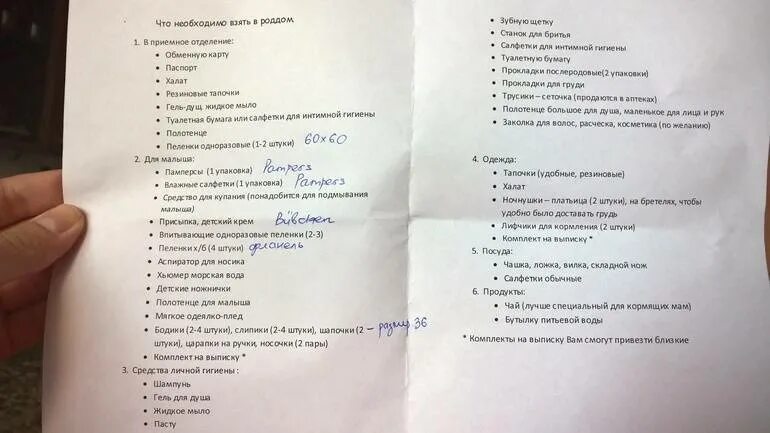 Что необходимо взять в роддом
1. В приемное отделение:
• Обменную карту
• Паспорт
• Халат
• Резиновые тапочки
• Гель-душ, жидкое мыло
• Туалетная бумага или салфетки для интимной гигиены
• Полотенце
• Пеленки одноразовые (1-2 штуки) 60x60
2. Для малыша:
• Памперсы (1 упаковка) Pampers
• Влажные салфетки (1 упаковка) Pampers
• Средство для купания (понадобится для подмывания
малыша)
• Присыпка, детский крем Bübchen
• Впитывающие одноразовые пеленки (2-3)
• Пеленки х/б (4 штуки) фланель
• Аспиратор для носика
• Хьюмер морская вода
• Детские ножнички
• Полотенце для малыша
• Мягкое одеялко-плед
• Бодики (2-4 штуки), слипики (2-4 штуки), шапочки (2 – размер 36
штуки), царапки на ручки, носочки (2 пары)
• Комплект на выписку *
3. Средства личной гигиены :
• Шампунь
• Гель для душа
• Жидкое мыло
• Пасту
• Зубную щетку
• Станок для бритья
• Салфетки для интимной гигиены
• Туалетную бумагу
• Прокладки послеродовые(2 упаковки)
• Прокладки для груди
• Трусики – сеточка (продаются в аптеках)
• Полотенце большое для душа, маленькое для лица и рук
• Заколка для волос, расческа, косметика (по желанию)
4. Одежда:
• Тапочки (удобные, резиновые)
• Халат
• Ночнушки – платьица (2 штуки), на бретелях, чтобы
удобно было доставать грудь
• Лифчики для кормления (2 штуки)
• Комплект на выписку *
5. Посуда:
• Чашка, ложка, вилка, складной нож
• Салфетки обычные
6. Продукты:
• Чай (лучше специальный для кормящих мам)
• Бутылку питьевой воды
* Комплекты на выписку Вам смогут привезти близкие